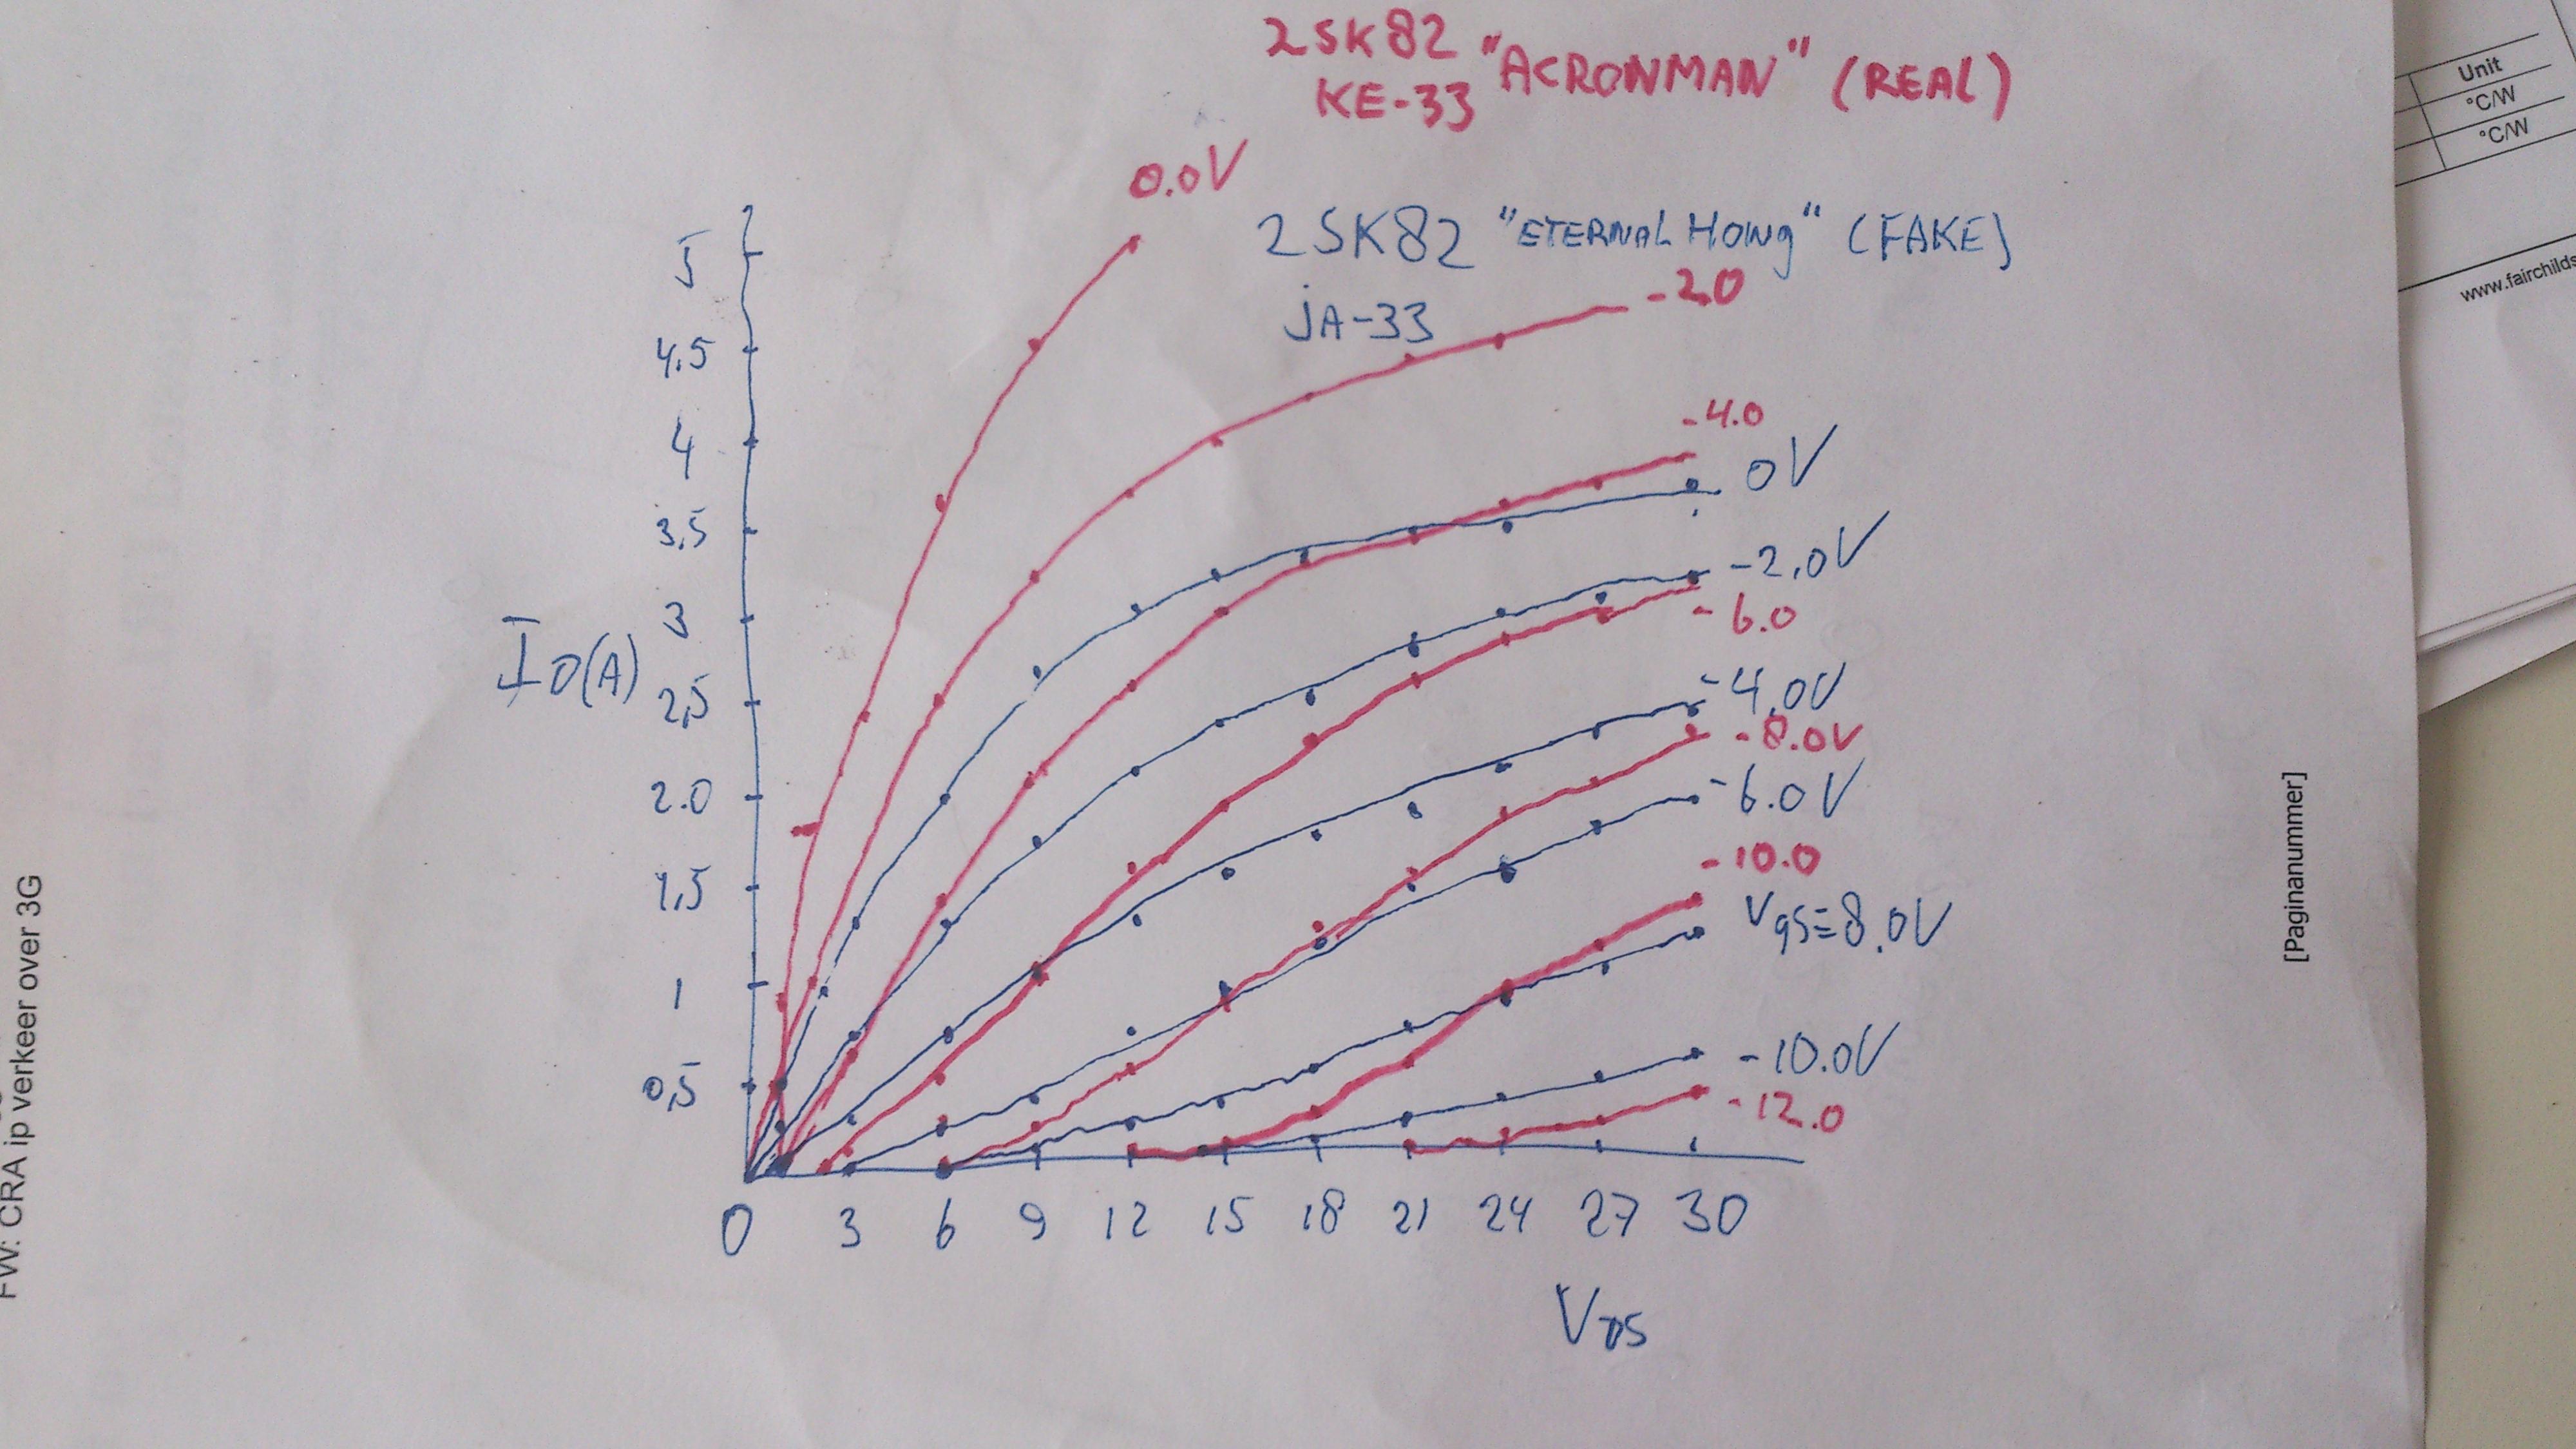 2SK82 "ACRONMAN" (REAL)
KE-33
0.0V
2SK82 "ETERNAL HONG" (FAKE)
JA-33
-2.0
-4.0
0V
-2.0V
-6.0
-4.0V
-8.0V
-6.0V
-10.0
Vgs=8.0V
-10.0V
-12.0
5
4.5
4
3.5
3
ID(A)
2,5
2.0
1,5
1
0,5
0 3 6 9 12 15 18 21 24 27 30
VDS
Unit
°C/W
°C/W
www.fairchilds
[Paginanummer]
FW: CRA ip verkeer over 3G